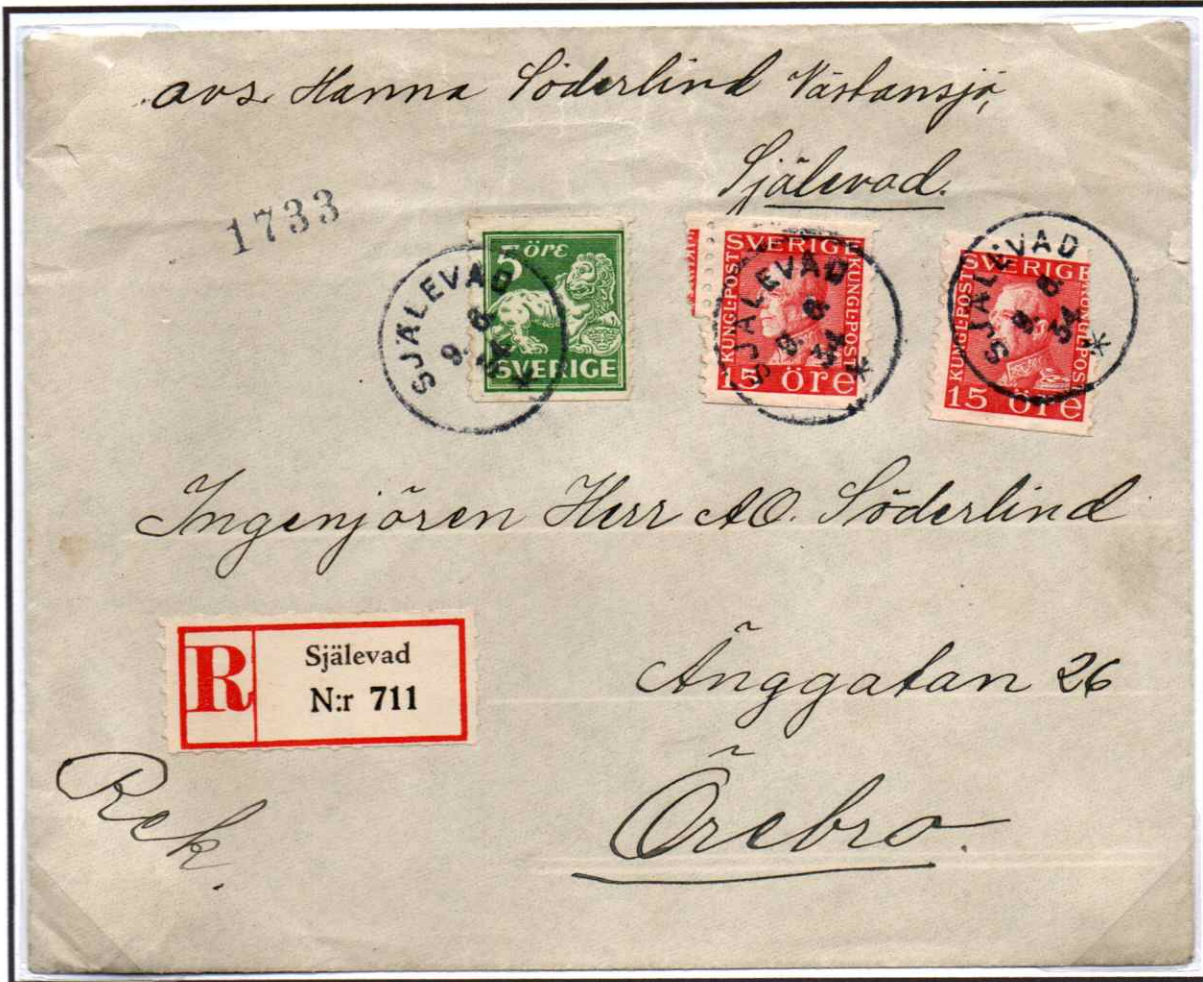 avs. Hanna Söderlind Västansjö,
Själevad.
1733
5 öre
SVERIGE
SJÄLEVAD
9. 8. 34
SVERIGE
KUNGL·POST
KUNGL·POST
15 öre
SJÄLEVAD
9. 8. 34
SVERIGE
KUNGL·POST
KUNGL·POST
15 öre
SJÄLEVAD
9. 8. 34
Ingenjören Herr A.O. Söderlind
R
Själevad
N:r 711
Änggatan 26
Rek.
Örebro.